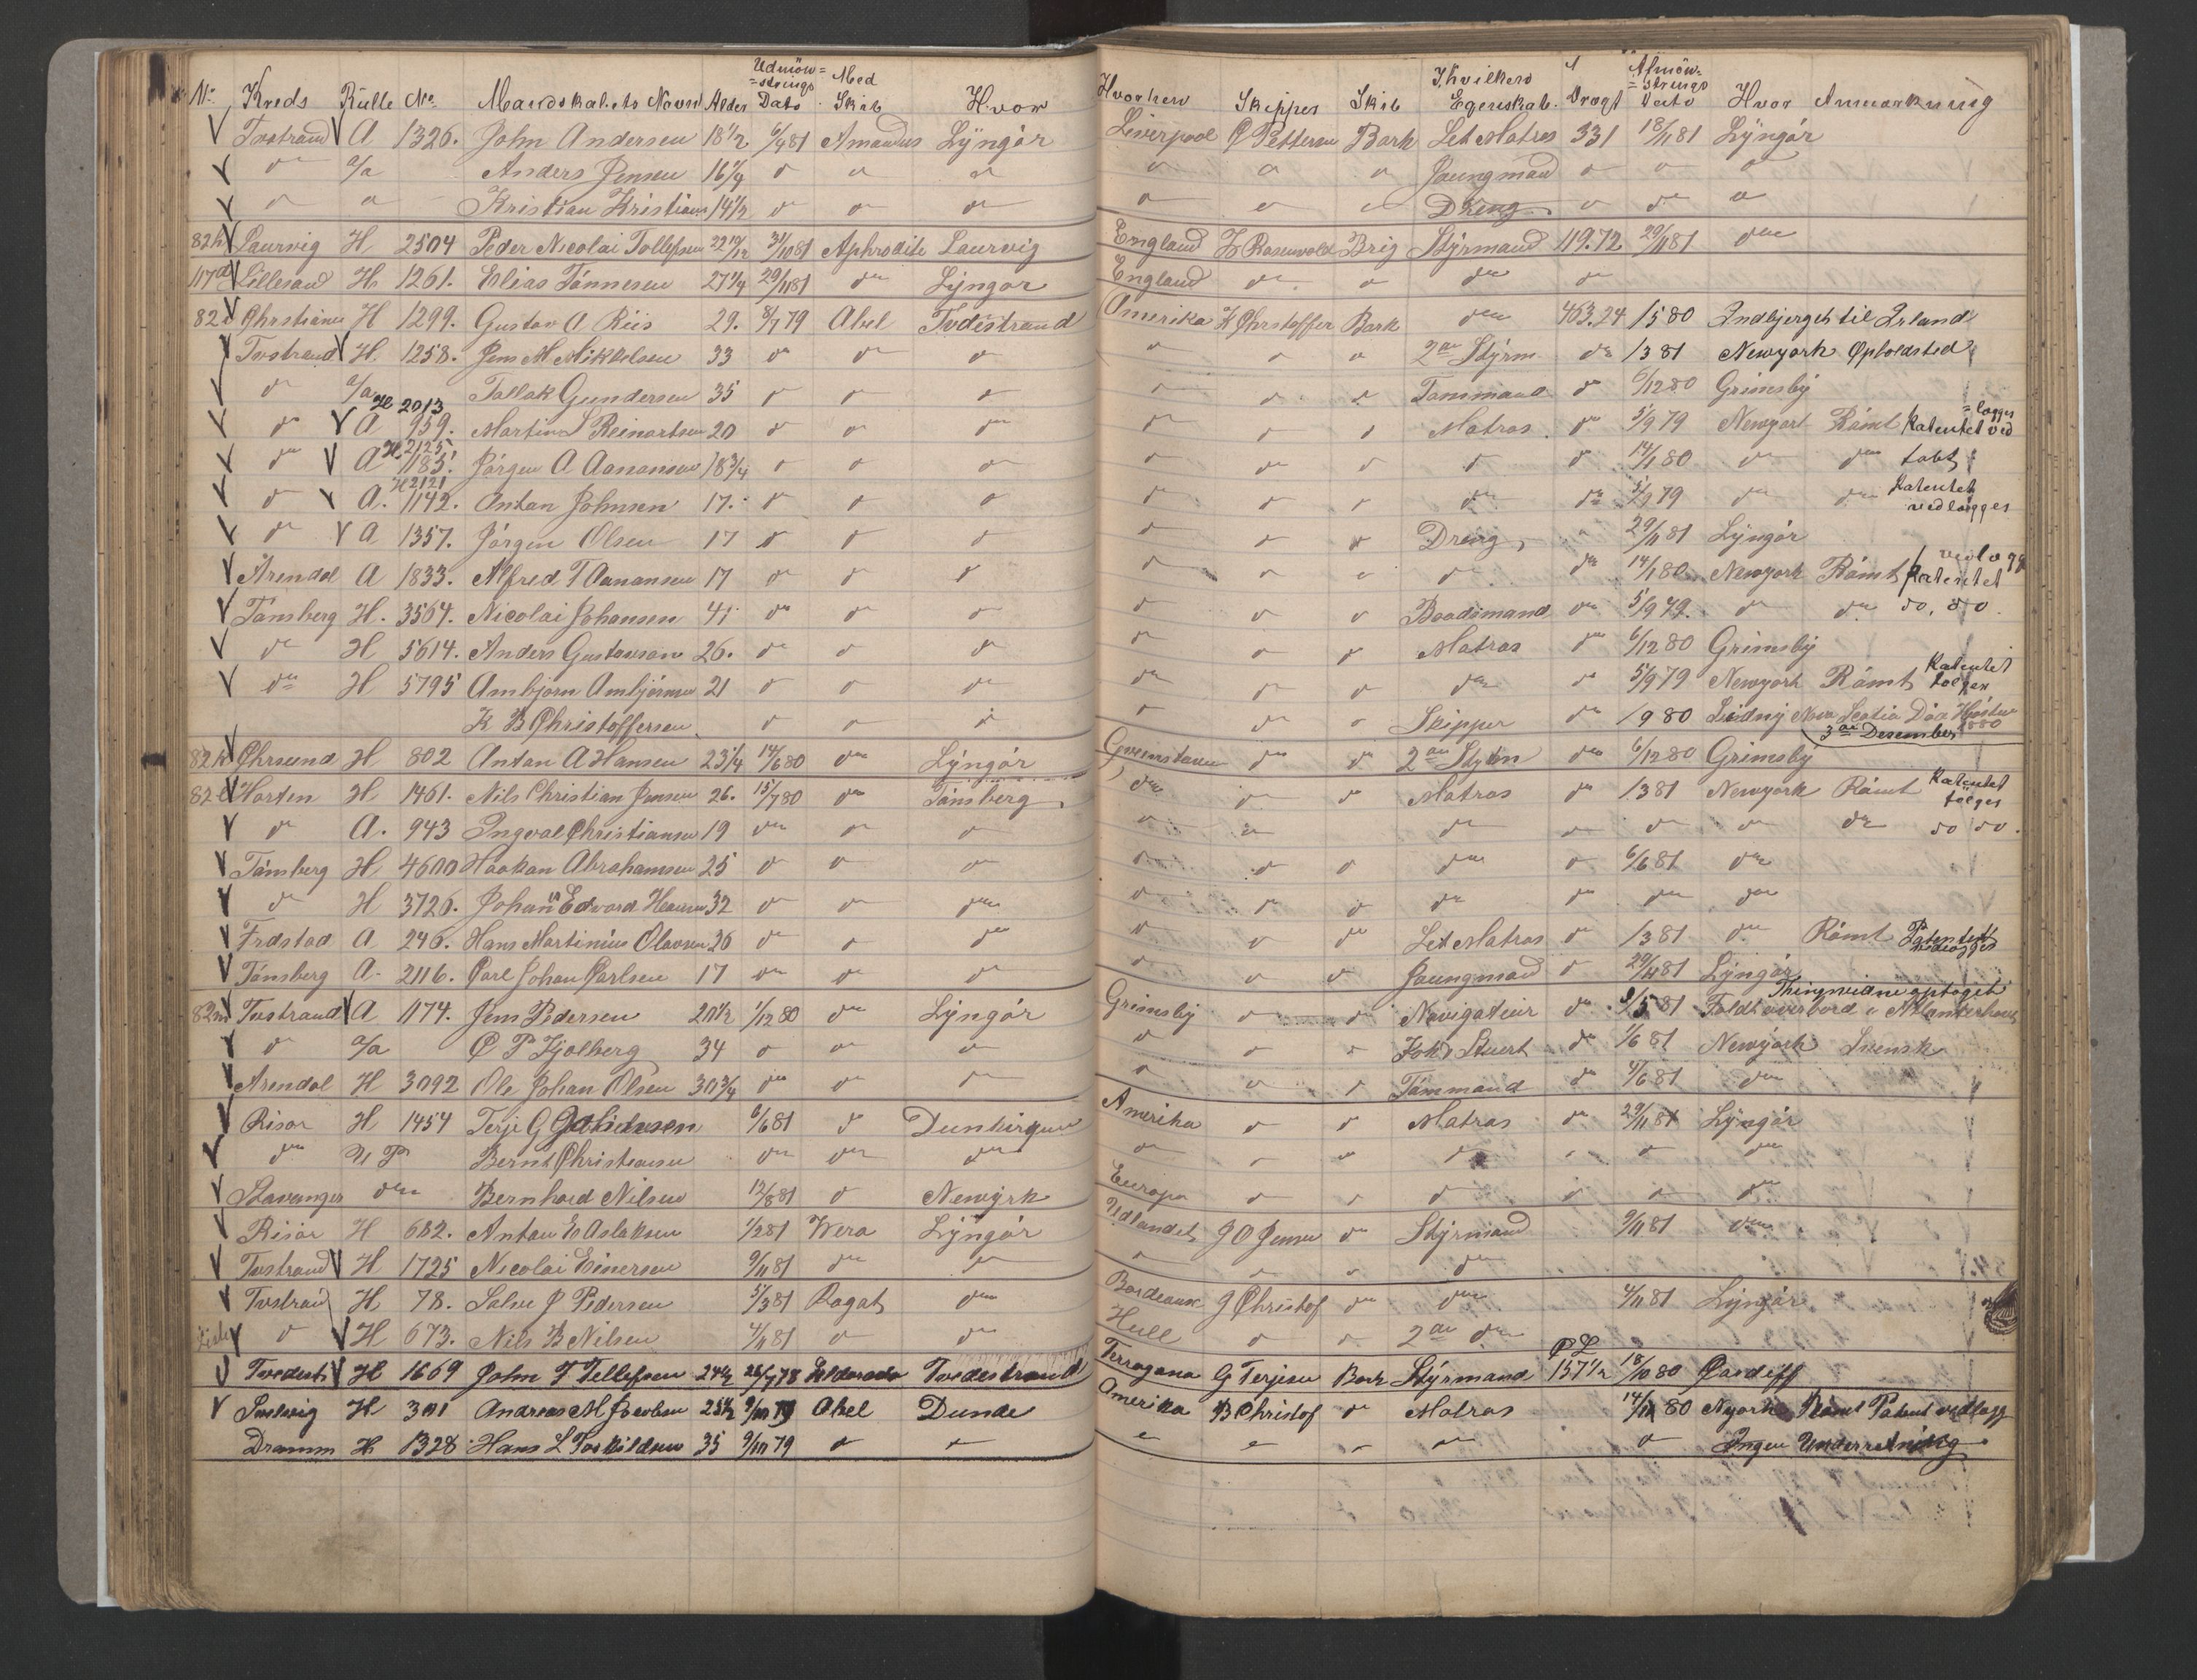 No Kreds Rulle No Mandskabets Navn Alder Udmönstrings Dato Med Skib Hvor Hvorhen Skipper Skib I hvilken Egenskab Drægt Afmönstrings Dato Hvor Anmærkning
Tvstrand A 1326. John Andersen 18 1/2 81 Amandus Lÿngör Liverpool C Pettersen Bark Let Matros 331 18/11 81 Lÿngör
do a/a Anders Jensen 16 1/4 do do do do do do Joungmand do do do
do do Kristian Kristians 14 1/2 do do do do do do Dreng do do do
82h Laurvig H 2504 Peder Nicolai Tollefsen 22 10/12 31/10 81 Aphrodite Laurvig England Rosenvold Brig Stÿrmand 119.72 29/11 81 do
117d Lillesand H 1261. Elias Tönnesen 27 1/4 29/11 81 do Lyngör England do do do do
82i Chrstiania H 1299. Gustav A Riis 29. 8/7 79 Abel Tvdestrand Amerika K Chrstoffer Bark do 463.24 1 5 80 Indbjerget til Irland
Tvstrand H. 1258. Jens M Mikkelsen 33 do do do do do do 2den Stÿrm do 1 3 81 Newyork Opholdsted
do a/a Tallak Gundersen 35 do do do do do do Tömmand do 6/12 80 Grimsbÿ
do A H 2013 959. Martin S Reinertsen 20 do do do do do do Matros do 5/9 79 Newyork Römt Patentet ved=lægges
do A H 2125 1183. Jörgen A Aanonsen 18 3/4 do do do do do do do do 14/1 80 do do tabt
do A. H 2121 1142. Anton Johnsen 17. do do do do do do do do 5/9 79 do do Patentet vedlægges
do A 1357. Jörgen Olsen 17 do do do do do do Dreng 29/11 81 Lÿngör
Arendal A 1833. Alfred T Aanonsen 17 do do do do do do do do 14/1 80 Newyork Römt Patentet vedlægg
Tönsberg H. 3564. Nicolai Johansen 41 do do do do do do Baadsmand do 5/9 79. do do do. do.
do H 5614. Anders Gustavson 26. do do do do do do Matros do 6/12 80 Grimsbÿ
do H 5795 Ambjörn Ambjörnsen 21 do do do do do do do do 5/9 79 Newyork Römt Patentet
K B Christoffersen do do do do do do Skipper do 1 9 80 Nova Scotia 3de Desember
82k Chrsund H 802 Anton A Hansen 23 1/4 14/6 80 do Lÿngör do do 2den do 6/12 80 Grimsbÿ
82l Horten H 1461. Nils Christian Jensen 26. 15/7 80 do Tönsberg do do do Matros do 1 3 81 Newyork Römt Patentet
do A. 943 Ingval Christiansen 19 do do do do do do do do do do do do
Tönsberg H 4600 Haakon Abrahamsen 25 do do do do do do do do 6/6 81 do
do H 3726. Johan Edvard 32 do do do do do do do do do do
Frdstad A 246. Hans Martinius Olavsen 26 do do do do do do Let Matros do 1 3 81 do Römt Patentet vedlægges
Tönsberg A. 2116. Carl Johan Carlsen 17 do do do do do do Joungmand do 29/11 81 Lÿngör
82m Tvstrand A 1174. Jens Pedersen 20 1/2 1/12 80 do Lÿngör Grimsbÿ do do Navigateur do 81 Faldt overbord i Atlanterhavet Thingsvidne optaget
do a/a C P Kjolberg 34 do do do do do do Kok Stuert do 1/6 81 Newÿork Svensk
Arendal H 3092 Ole Johan Olsen 30 3/4 do do do do do do Tömmand do 4/6 81 do
Risör H 1454 Terje G 6/6 81 do Dunkirquen Amerika do do Matros do 29/11 81 Lÿngör
do U P Bernt Christiansen do do do do do do do do do do
Stavanger do Bernhard Nilsen 12/8 81 do Newÿrk Europa do do do do do do
Risör H 682. Anton E Aslaksen 1/2 81 Wera Lÿngör Udlandet J O Jensen do Stÿrmand 9/11 81 do
Tvstrand H 1725 Nicolai Einersen 9/11 81 do do do do do do
Tvstrand H 78. Salve J Pedersen 5/3 81 Rogat do Bordeaux J Christof do do 4/11 81 Lÿngör
do H 673. Nils B Nilsen 4/11 81 do do Hull do do 2den do
Tvedest H 1669 John T Tellefsen 24 1/2 26/7 78 Eldorado Tvedestrand Terragona G Terjesen Bark Stÿrmand C L 157 1/2 18/10 80 Cardiff
H 301 Andreas M Jacobsen 25 1/2 9/10 79 Abel Dunde Amerika B Christof do Matros 14/1 80 Nyork Römt Patent vedlagg
Dramm H 1328 Hans L Torkildsen 35 9/10 79 do do do do do do do Ingen Underretning